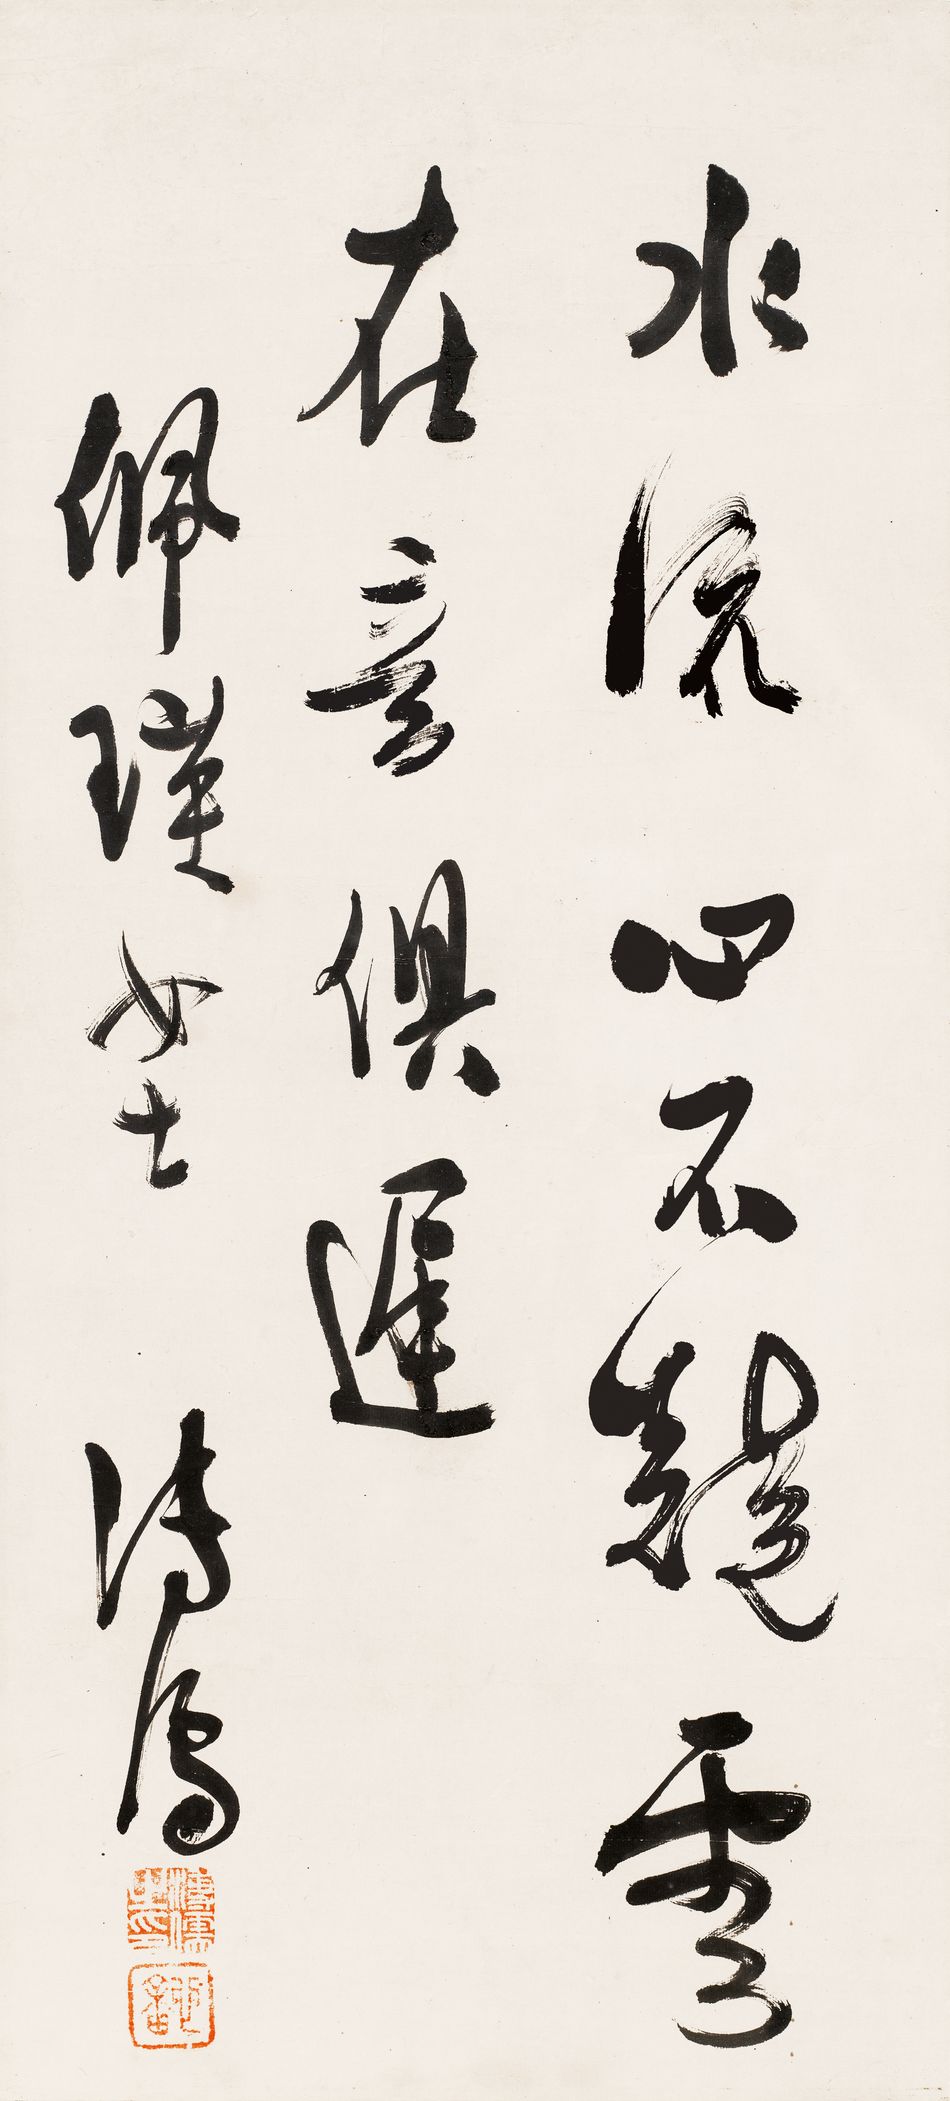 水流心不競雲
在意俱遲
佩瑾女士 溥儒